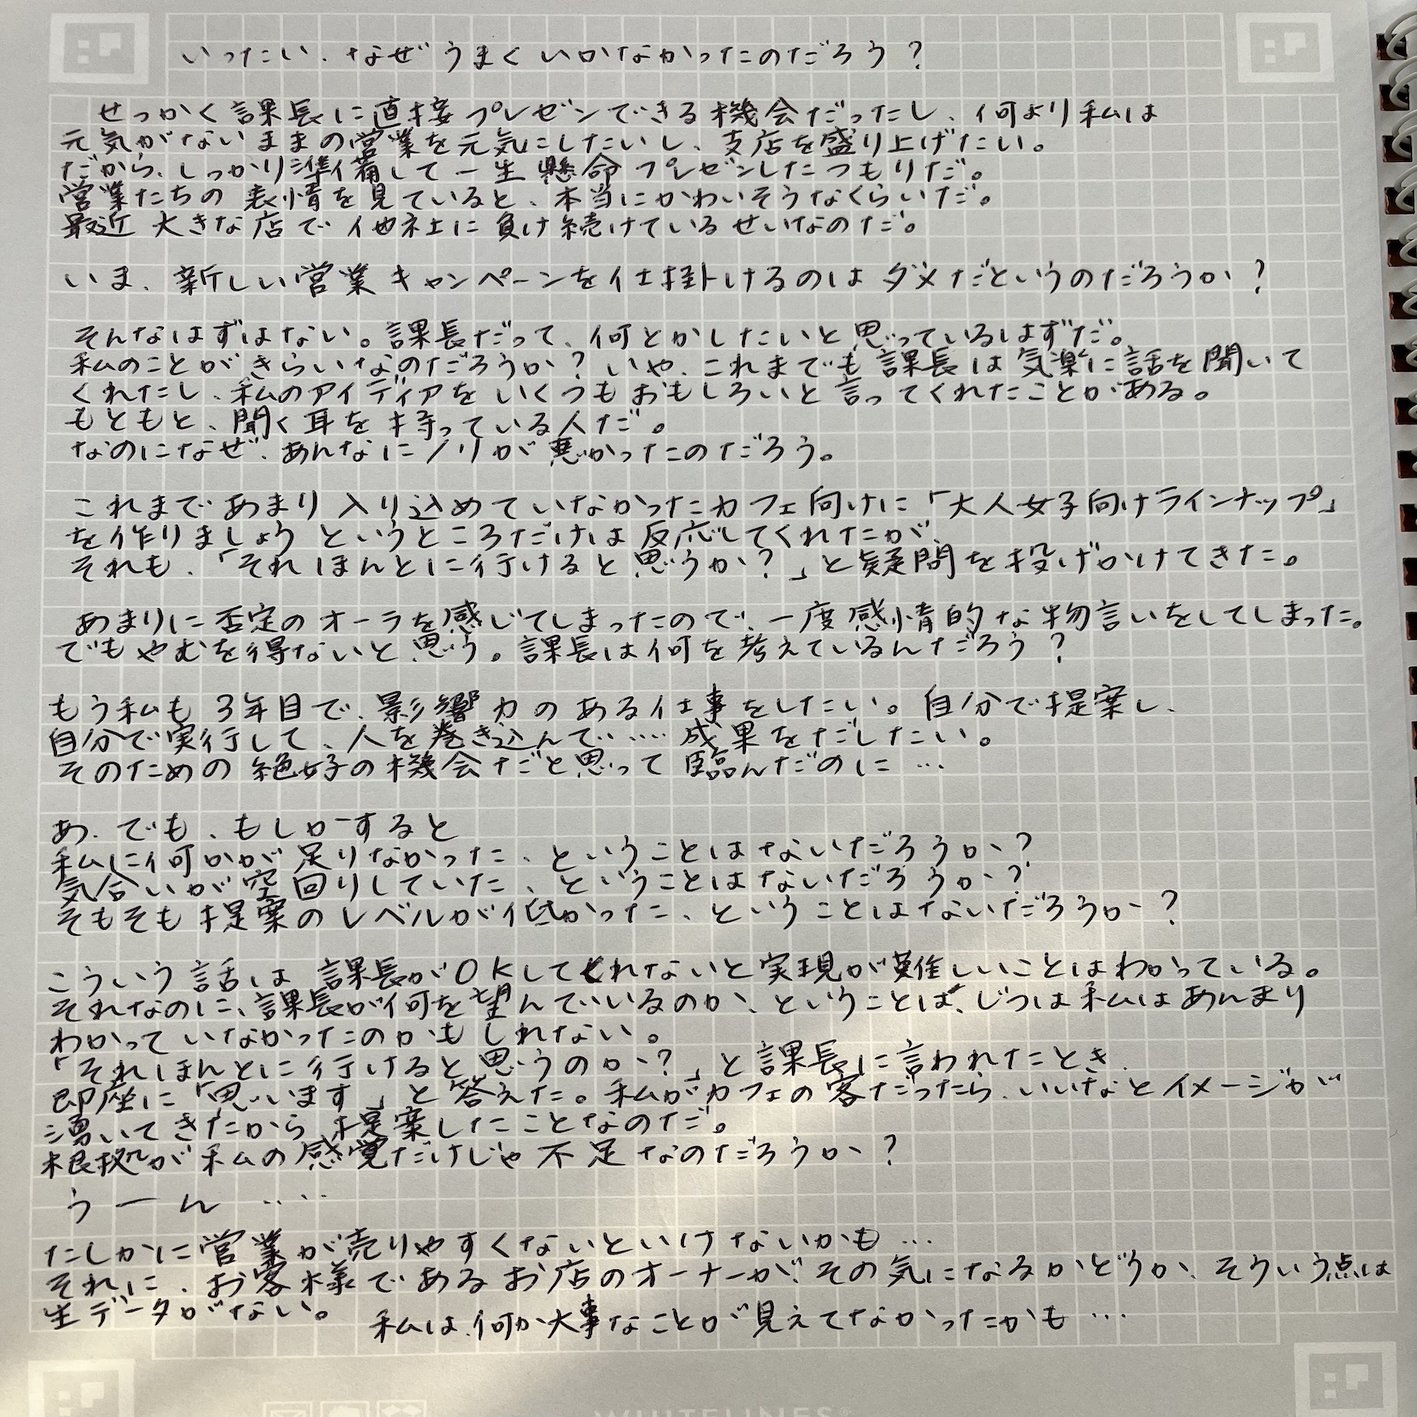 いったい、なぜうまくいかなかったのだろう?
せっかく課長に直接プレゼンできる機会だったし、何より私は
元気がないままの営業を元気にしたいし、支店を盛り上げたい。
だから、しっかり準備して一生懸命プレゼンしたつもりだ。
営業たちの表情を見ていると、本当にかわいそうなくらいだ。
最近大きな店で他社に負け続けているせいなのだ。
いま、新しい営業キャンペーンを仕掛けるのはダメだというのだろうか?
そんなはずはない。課長だって、何とかしたいと思っているはずだ。
私のことがきらいなのだろうか?いや、これまでも課長は気楽に話を聞いて
くれたし、私のアイディアをいくつもおもしろいと言ってくれたことがある。
もともと、聞く耳を持っている人だ。
なのになぜ、あんなにノリが悪かったのだろう。
これまであまり入り込めていなかったカフェ向けに「大人女子向けラインナップ」
を作りましょうというところだけは反応してくれたが、
それも、「それほんとに行けると思うか?」と疑問を投げかけてきた。
あまりに否定のオーラを感じてしまったので、一度感情的な物言いをしてしまった。
でもやむを得ないと思う。課長は何を考えているんだろう?
もう私も3年目で、影響力のある仕事をしたい。自分で提案し、
自分で実行して、人を巻き込んで……成果をだしたい。
そのための絶好の機会だと思って臨んだのに…
あ、でも、もしかすると
私に何かが足りなかった、ということはないだろうか?
気合いが空回りしていた、ということはないだろうか?
そもそも提案のレベルが低かった、ということはないだろうか?
こういう話は課長がOKしてくれないと実現が難しいことはわかっている。
それなのに、課長が何を望んでいるのか、ということは、じつは私はあんまり
わかっていなかったのかもしれない。
「それほんとに行けると思うのか?」と課長に言われたとき、
即座に「思います」と答えた。私がカフェの客だったら、いいなとイメージが
湧いてきたから提案したことなのだ。
根拠が私の感覚だけじゃ不足なのだろうか?
うーん……
たしかに営業が売りやすくないといけないかも…
それに、お客様であるお店のオーナーが、その気になるかどうか、そういう点は
生データがない。 私は、何か大事なことが見えてなかったかも…
WHITELINES®